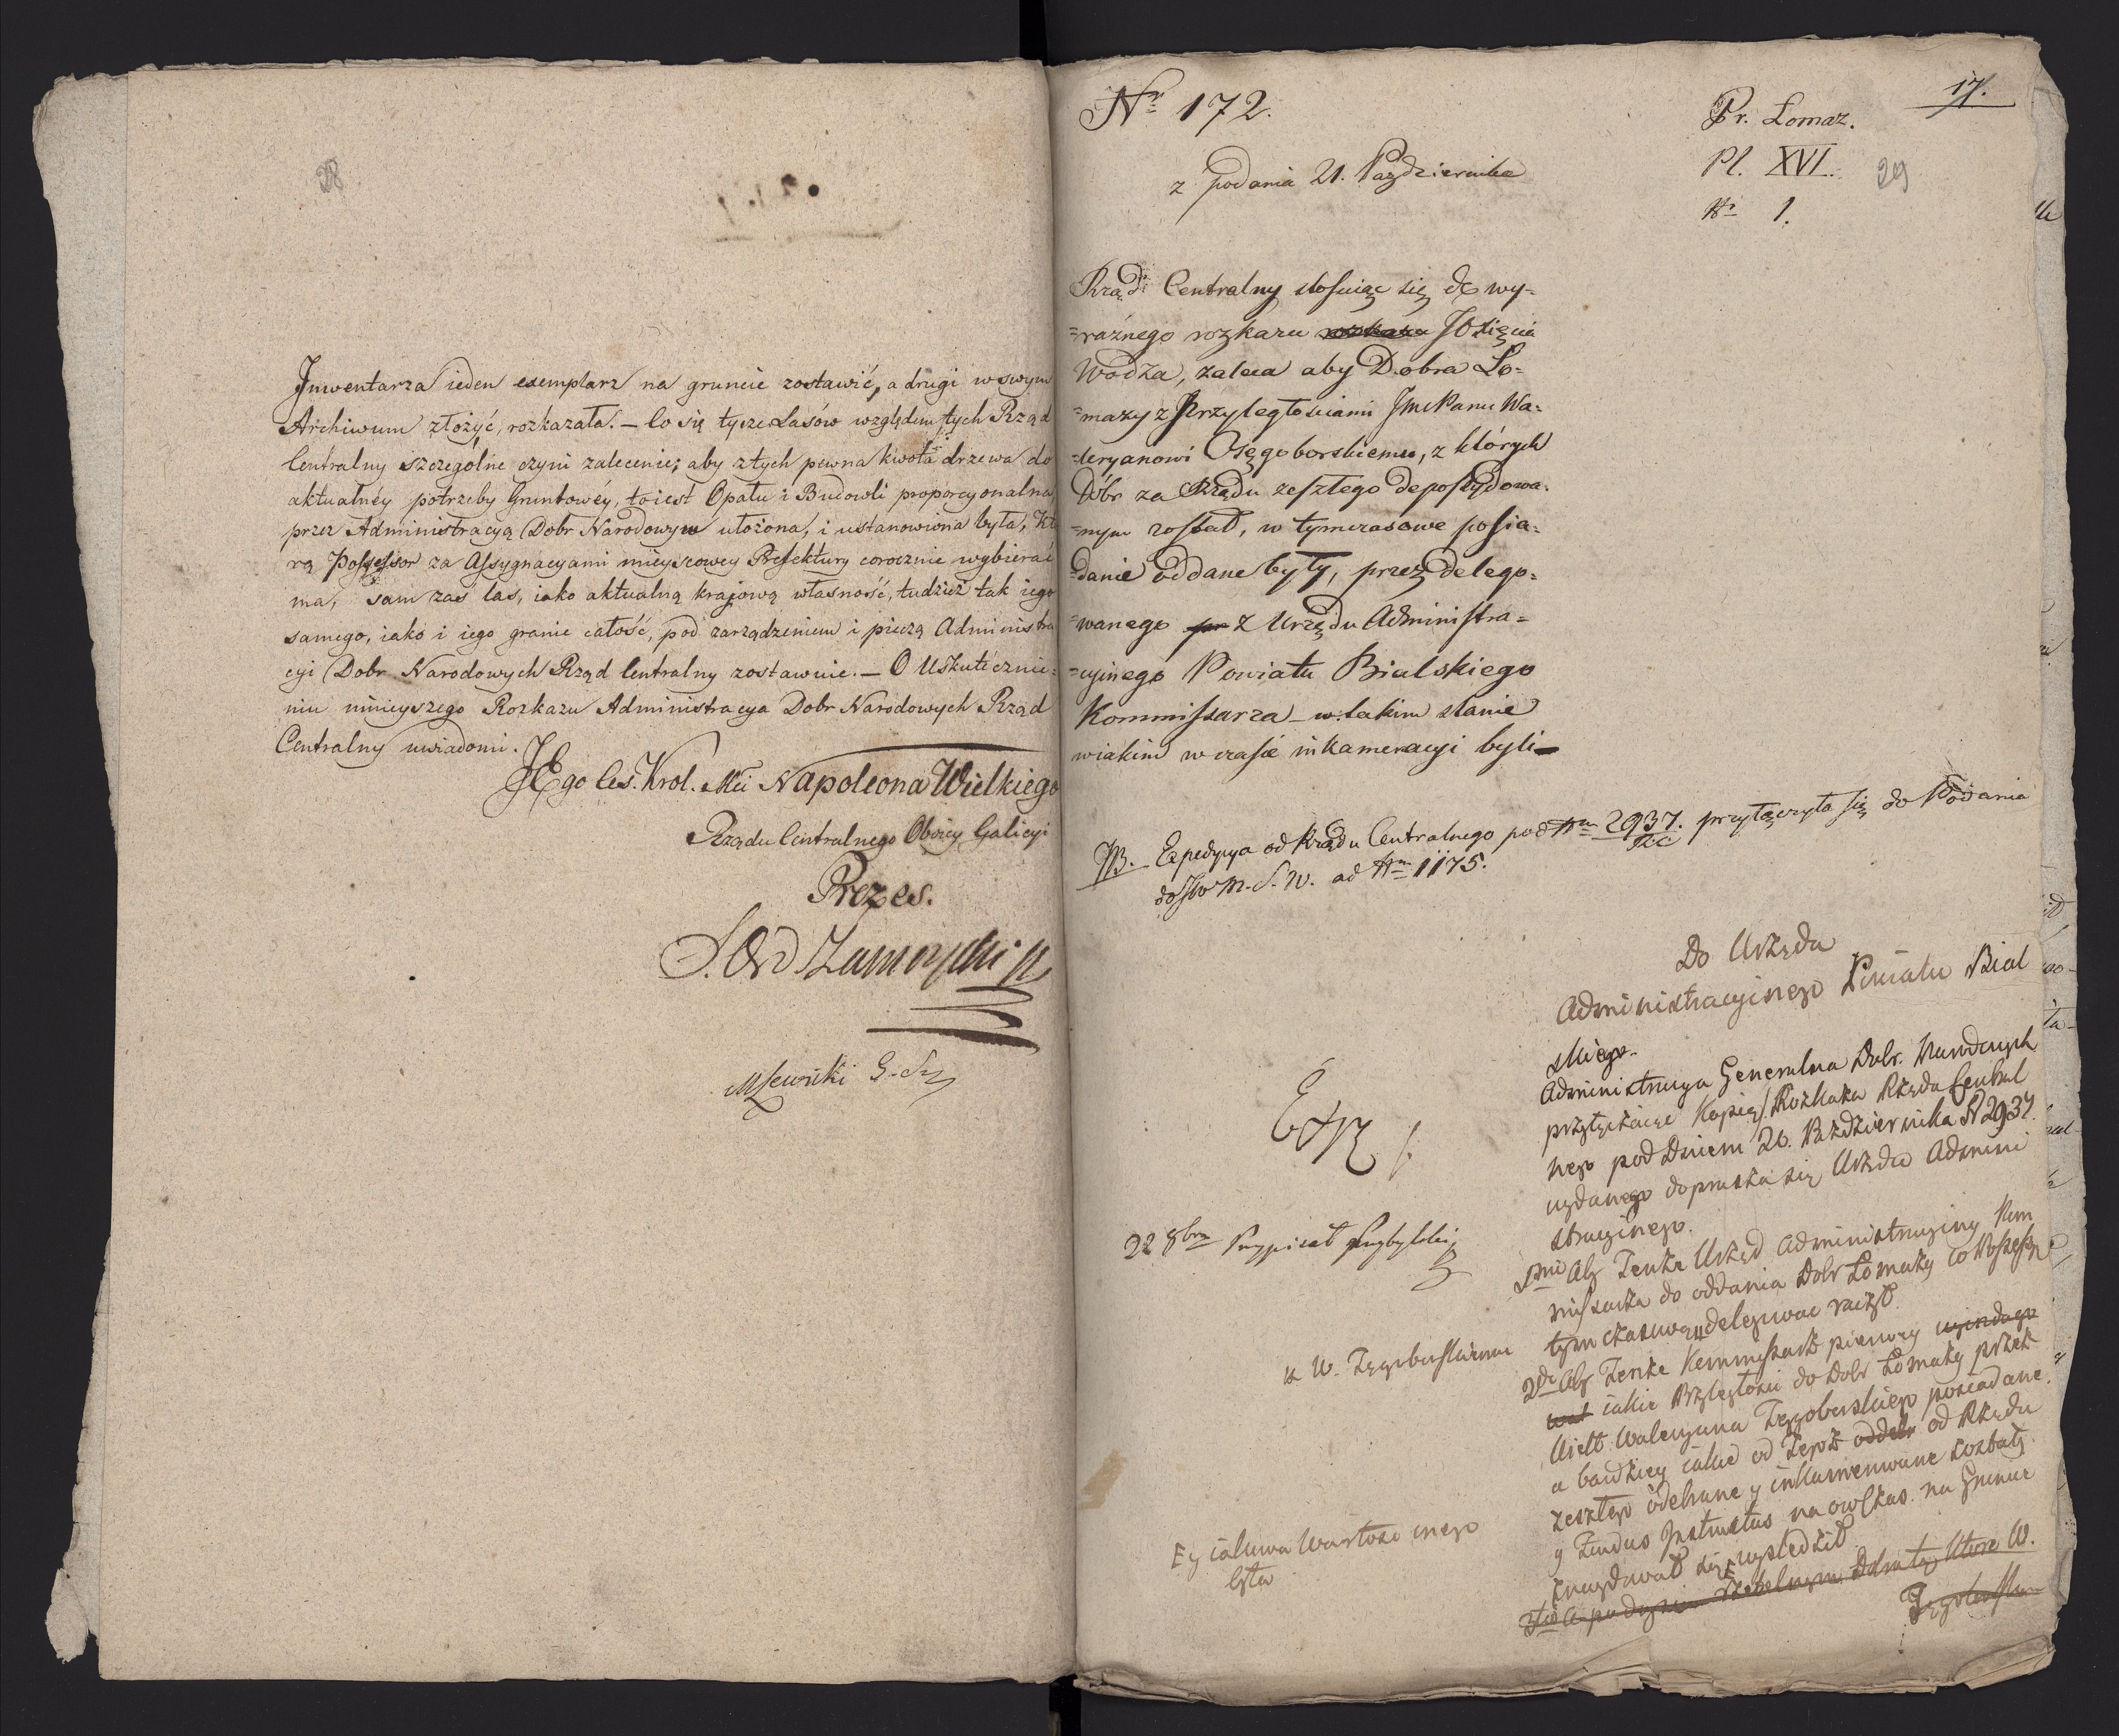 28
Inwentarza ieden exemplarz na gruncie zostawić, a drugi w swym
Archiwum złożyć, rozkazała. — Co się tycze Lasów względem tych Rząd
Centralny szczególne czyni zalecenie; aby z tych pewna kwota drzewa do
aktualnéy potrzeby Gruntowéy, to iest Opału i Budowli proporcyonalna
przez Administracyą Dobr Narodowym ułożona, i ustanowiona była, Któ
rą Possessor za Assygnacyami mieyscowey Prefektury corocznie wybierać
ma, sam zaś las, iako aktualną krajową własność, tudzież tak iego
samego, iako i iego granic całość, pod zarządzeniem i pieczą Administra
cyi Dobr Narodowych Rząd Centralny zostawuie. — O Uskutecznie=
niu ninieyszego Rozkazu Administracya Dobr Narodowych Rząd
Centralny uwiadomi.
JEgo Ces. Krol. Mci Napoleona Wielkiego
Rządu Centralnego Oboiey Galicyi
Prezes.
S. Ord Zamoyski
G. S.
Nr 172.
z podania 21. Października
Pr. Lomaz.
Pl. XVI.
Nr 1.
17.
29
Rząd Centralny stosuiąc się do wy=
=raźnego rozkazu rozkazu JO Xięcia
Wodza, zaleca aby Dobra Lo=
=mazy z Przyległościami JmcPanu Wa=
=leryanowi Tęgoborskiemu, z których
Dóbr za Rządu zeszłego depossydowa=
=nym został, w tymczasowe posia=
=danie oddane były, przez delego=
=wanego pr z Urzędu Administra=
=cyinego Powiatu Bialskiego
Kommissarza w takim stanie
w iakim w czasie inkameracyi byli
NB. Expedycya od Rządu Centralnego pod Nrm 2937. przyłączyła się do Podania
do M. S. W. ad Nrm 1175.
Do Urzędu
Administracyinego Powiatu Bial
skiego.
Administracya Generalna Dobr. Narodowych
przyłączaiąc Kopię Rozkazu Rządu Central
nego pod Dniem 20. Października N 2937.
wydanego doprasza się Urzędu Admini
stracyinego.
1mo Aby Tenże Urząd Administracyiny Kom
missarza do oddania Dobr Łomazy w Possessyę
tymczasową delegować raczył.
W. Tęgoborskiemu
2do Aby Tenże Kommissarz pierwey
iakie Przyległości do Dobr Łomazy przez
Waleryana Tęgoborskiego posiadane
a bardziey iakie od Tegoż od Rządu
zeszłego odebrane y inkamerowane zostały
y Fundus Instructus na ow czas na Gruncie
znaydował się wyśledził
Ey iakowa Wartość onego
była
3tio
Które W.
Exp
22 8bra Przypisał